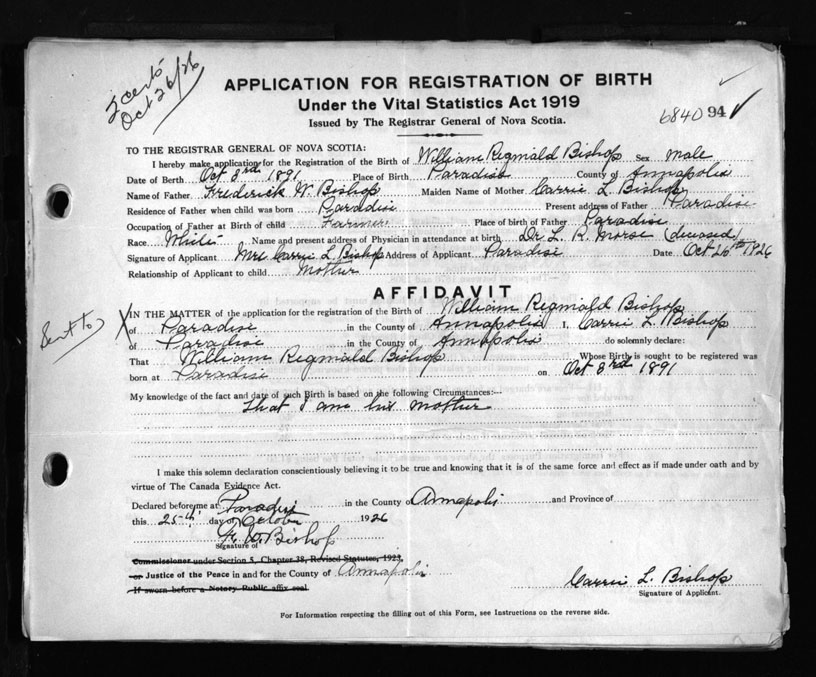 2 certs
Oct 26/26
APPLICATION FOR REGISTRATION OF BIRTH
Under the Vital Statistics Act 1919
Issued by The Registrar General of Nova Scotia.
6840 94
TO THE REGISTRAR GENERAL OF NOVA SCOTIA:
I hereby make application for the Registration of the Birth of William Reginald Bishop Sex Male
Date of Birth Oct 3rd 1891 Place of Birth Paradise County of Annapolis
Name of Father Frederick W. Bishop Maiden Name of Mother Carrie L Bishop
Residence of Father when child was born Paradise Present address of Father Paradise
Occupation of Father at Birth of child Farmer Place of birth of Father Paradise
Race White Name and present address of Physician in attendance at birth Dr L. R. Morse (deceased)
Signature of Applicant Mrs Carrie L Bishop Address of Applicant Paradise Date Oct 26th 1926
Relationship of Applicant to child Mother
AFFIDAVIT
Sent to
X IN THE MATTER of the application for the registration of the Birth of William Reginald Bishop
of Paradise in the County of Annapolis I, Carrie L. Bishop
of Paradise in the County of Annapolis do solemnly declare:
That William Reginald Bishop Whose Birth is sought to be registered was
born at Paradise on Oct 3rd 1891
My knowledge of the fact and date of such Birth is based on the following Circumstances:—
That I am his mother
I make this solemn declaration conscientiously believing it to be true and knowing that it is of the same force and effect as if made under oath and by
virtue of The Canada Evidence Act.
Declared before me at Paradise in the County of Annapolis and Province of
this 25th day of October 1926
F. W. Bishop
Signature of
Commissioner under Section 5, Chapter 38, Revised Statutes, 1923,
or Justice of the Peace in and for the County of Annapolis
If sworn before a Notary Public affix seal.
Carrie L. Bishop
Signature of Applicant.
For Information respecting the filling out of this Form, see Instructions on the reverse side.